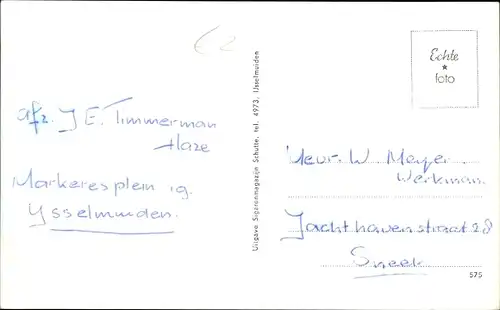 afz. J E. Timmerman
Haze
Markeresplein 19.
Ysselmuiden.
Uitgave Sigarenmagazijn Schutte, tel. 4973, IJsselmuiden
Echte
★
foto
Mevr. W. Meyer.
Werkman.
Jachthavenstraat 28
Sneek
575